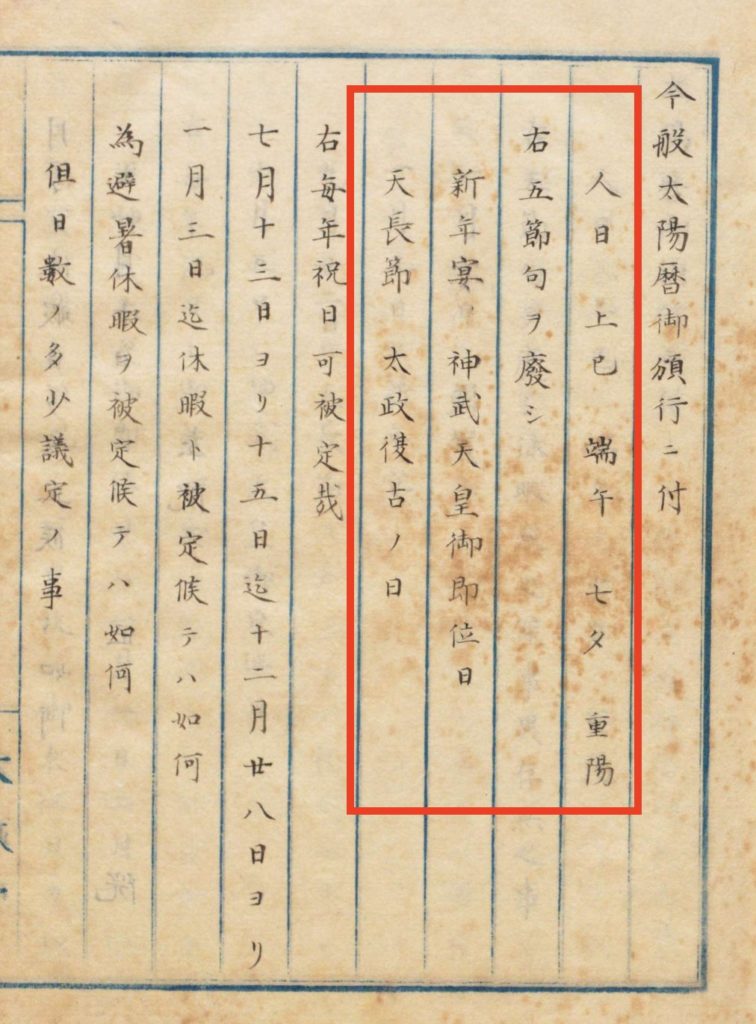 今般太陽暦御頒行ニ付
人日 上巳 端午 七夕 重陽
右五節句ヲ廢シ
新年宴 神武天皇御即位日
天長節 太政復古ノ日
右每年祝日可被定哉
七月十三日ヨリ十五日迄十二月廿八日ヨリ
一月三日迄休暇ト被定候テハ如何
為避暑休暇ヲ被定候テハ如何
但日數ノ多少議定ノ事